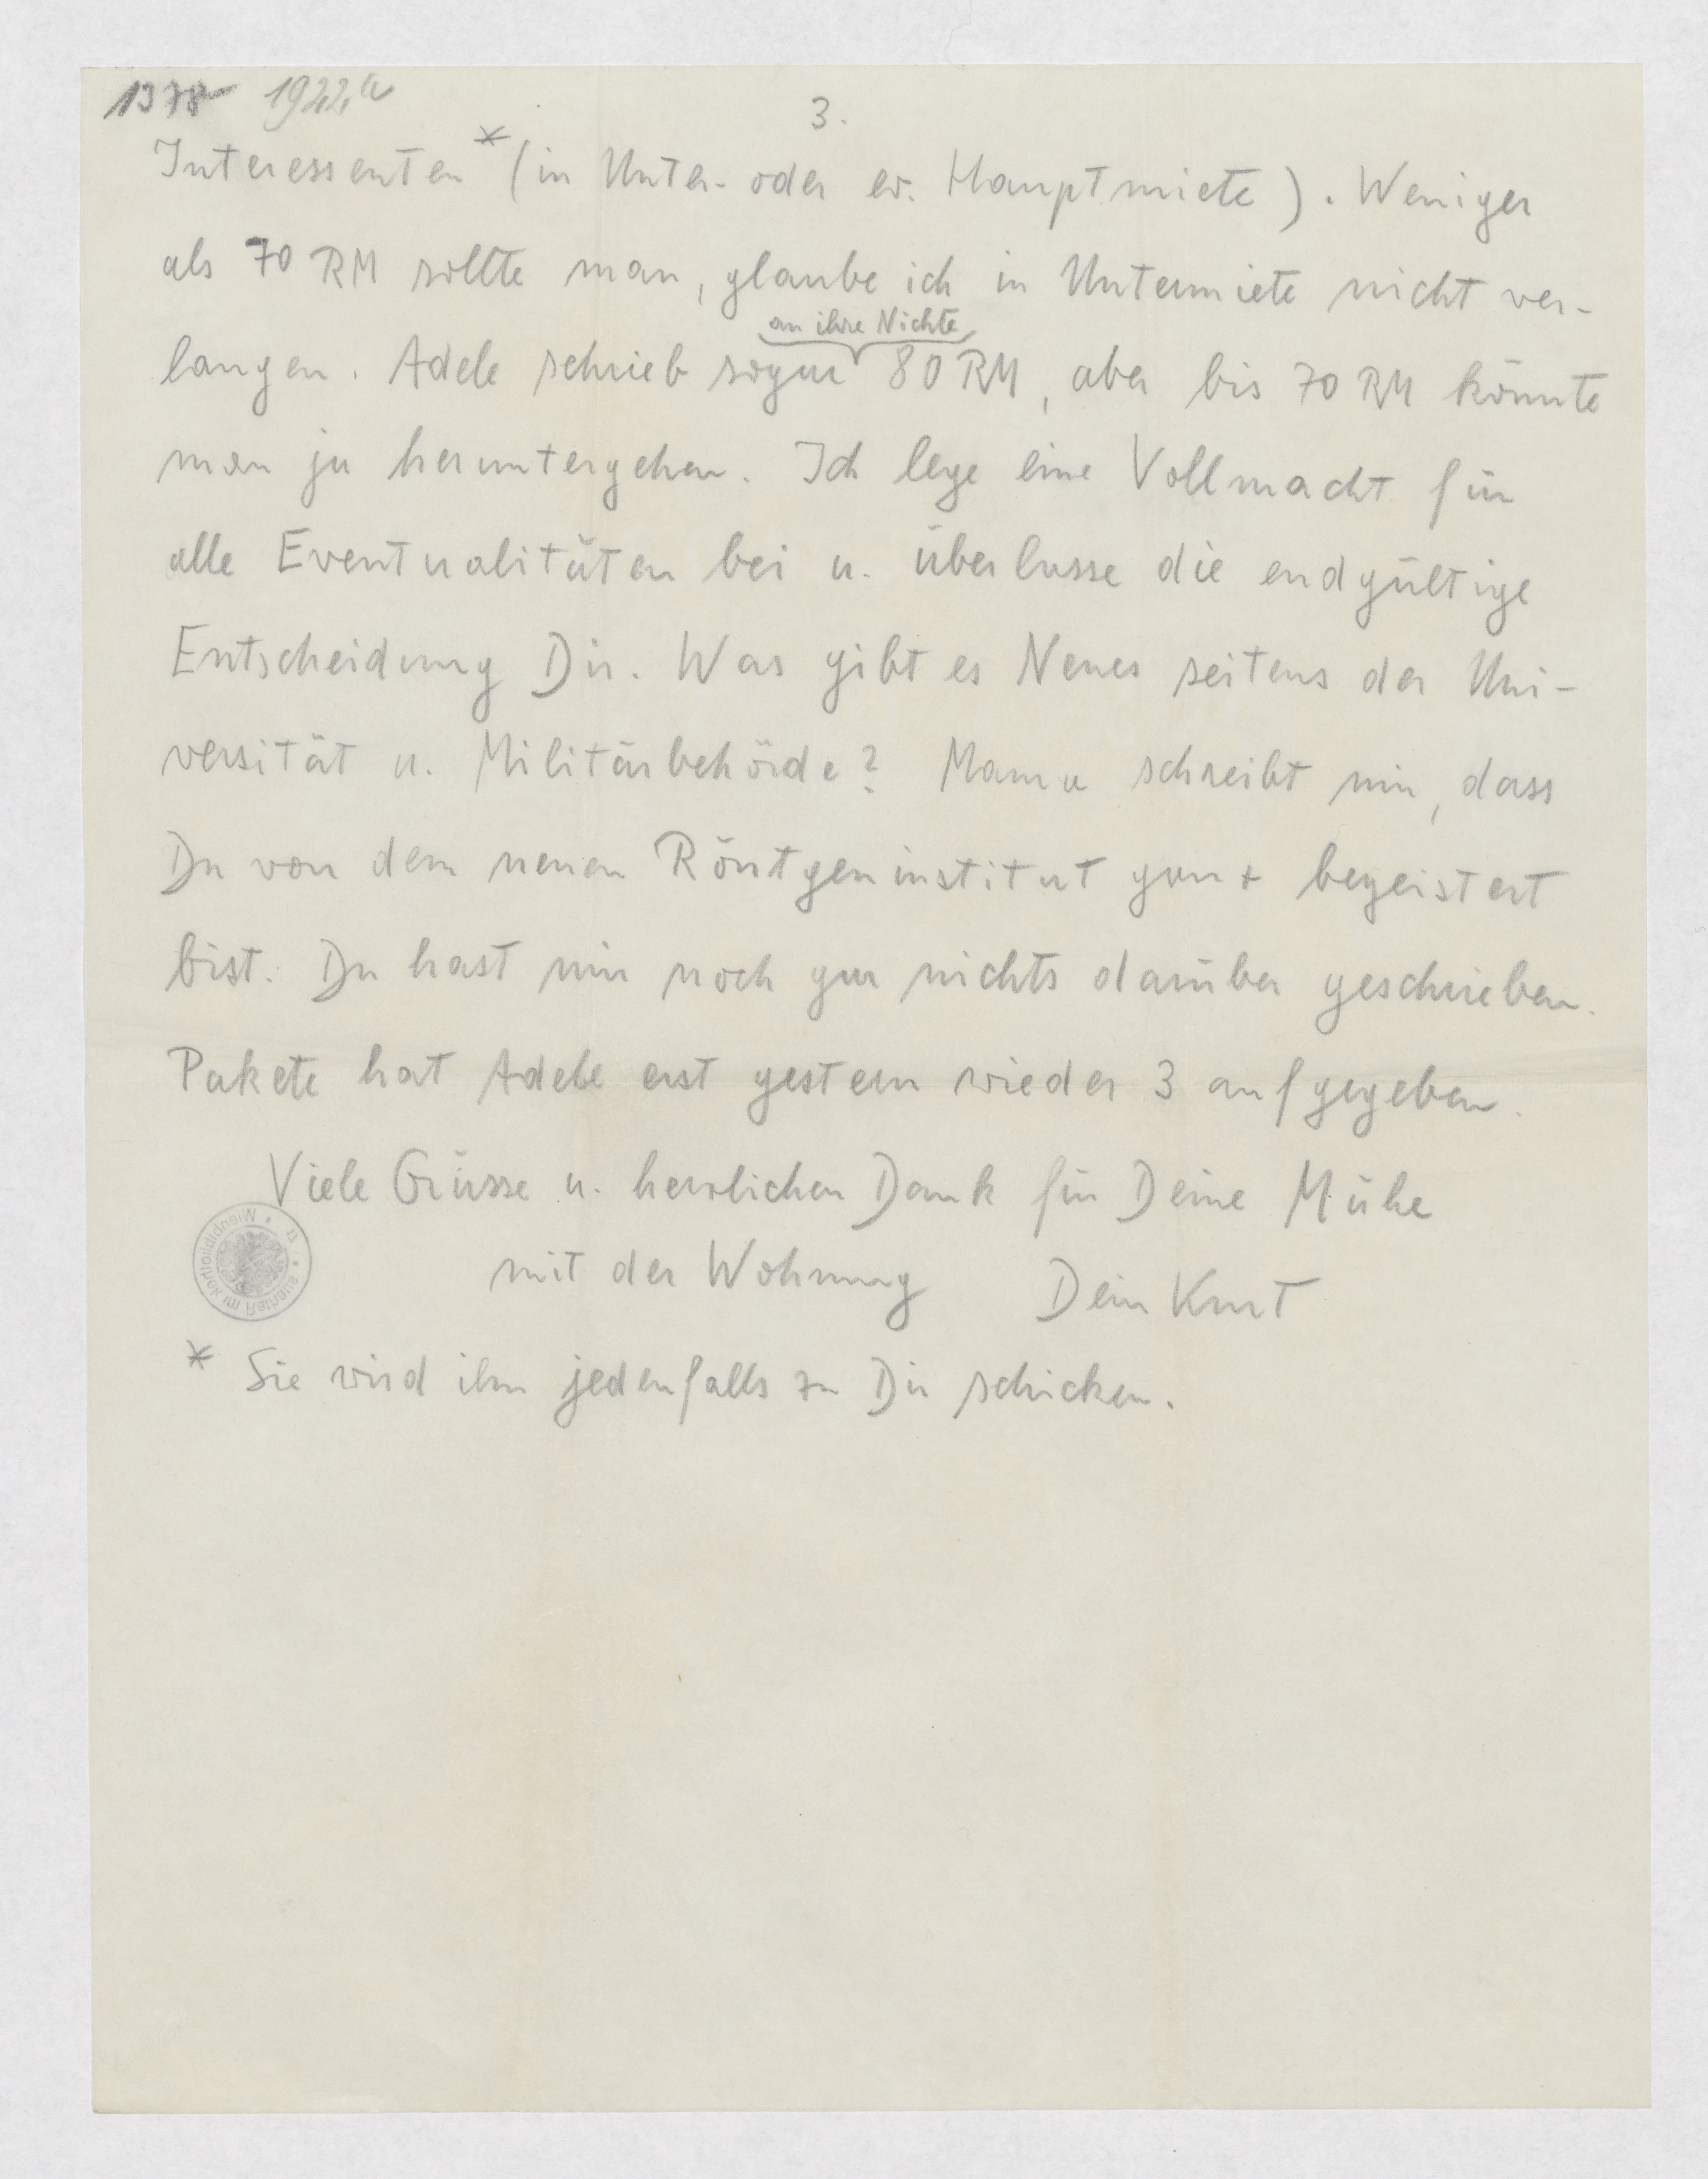 1378 1922a
3.
Interessenten* (in Unter- oder ev. Hauptmiete). Weniger
als 70 RM sollte man, glaube ich in Untermiete nicht ver-
an ihre Nichte
langen. Adele schrieb sogar 80 RM, aber bis 70 RM könnte
man ja heruntergehen. Ich lege eine Vollmacht für
alle Eventualitäten bei u. überlasse die endgültige
Entscheidung Dir. Was gibt es Neues seitens der Uni-
versität u. Militärbehörde? Mama schreibt mir, dass
Du von dem neuen Röntgeninstitut ganz begeistert
bist. Du hast mir noch gar nichts darüber geschrieben.
Pakete hat Adele erst gestern wieder 3 aufgegeben.
Viele Grüsse u. herzlichen Dank für Deine Mühe
mit der Wohnung Dein Kurt
Wienbibliothek im Rathaus
* Sie wird ihn jedenfalls zu Dir schicken.